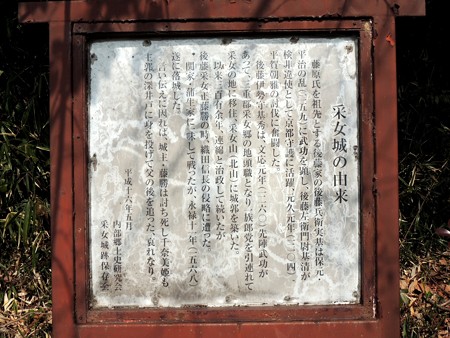 采女城の由来
藤原氏を祖先とする後藤家の後藤兵衛実基は保元・
平治の乱(一一五九)に武功を顕し、後藤左衛門尉基清が
検非違使として京都守護に活躍、元久元年(一二〇四)、
平賀朝雅の討伐に奮闘した。
後藤伊勢守基秀は、文応元年(一二六〇)先陣武功が
あって、三重郡采女郷の地頭職となり、族郎党を引連れて
采女の地に移住、采女山(北山)に城郭を築いた。
以来三百有余年、連綿と治政して続いたが、
後藤采女正藤勝の時、織田信長の侵略に遭った
関家、蒲生家に与して戦ったが、永禄十一年(一五六八)
遂に落城した。
言い伝えに因れば、城主・藤勝は討ち死し千奈美姫も
主郭の深井戸に身を投げて父の後を追った、哀れなり。
平成十六年五月
内部郷土史研究会
采女城跡保存会